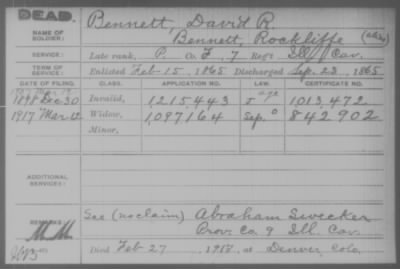 DEAD.
NAME OF SOLDIER:
Bennett, David R.
Bennett, Rockliffe (alias)
SERVICE:
Late rank, P. Co. F, 7 Reg't Ill. Cav.
TERM OF SERVICE:
Enlisted Feb. 15, 1865 Discharged Sep. 23, 1865
DATE OF FILING. CLASS. APPLICATION NO. LAW. CERTIFICATE NO.
1898 Dec 30 Invalid, 1,215,443 age 1,013,472
1917 Mar. 12 Widow, 1,097,164 Sep. 8 842,902
Minor,
ADDITIONAL SERVICES:
REMARKS:
See (no claim) Abraham Swecker
Prov. Co. 9 Ill. Cav.
Died Feb 27, 1917, at Denver, Colo.